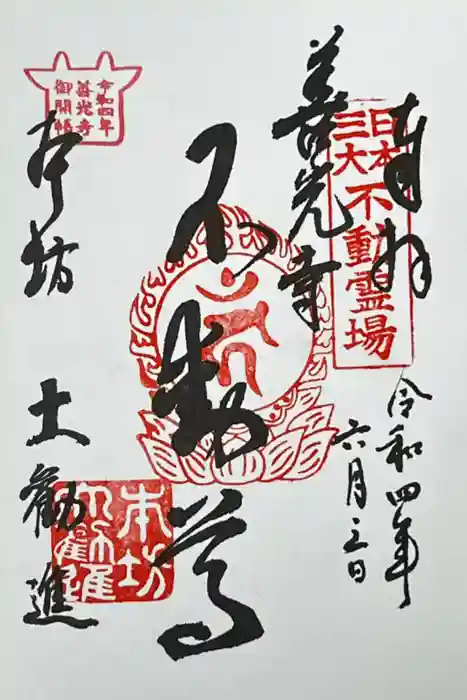 奉拝
令和四年
六月三日
日本
三大
不動霊場
善光寺
不動尊
令和四年
善光寺
御開帳
本坊
大勧進
本坊
大勧進